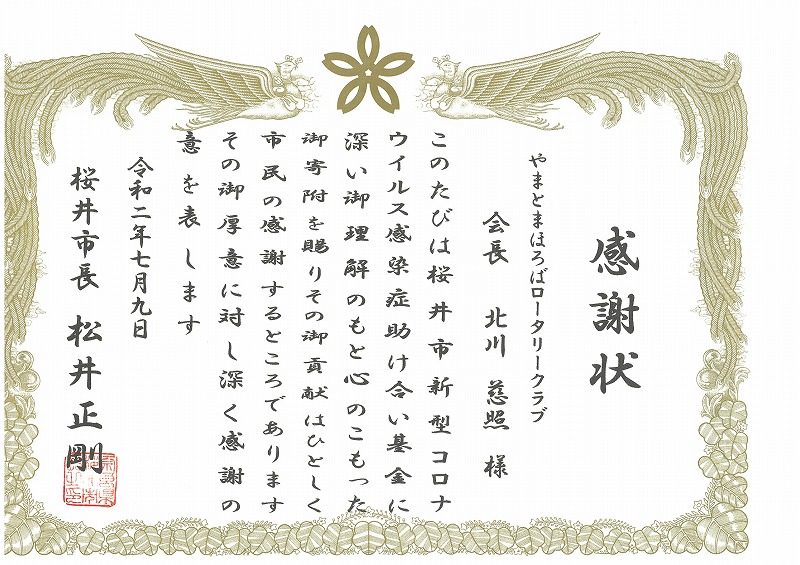 感謝状
やまとまほろばロータリークラブ
会長 北川 慈照 様
このたびは桜井市新型コロナ
ウイルス感染症助け合い基金に
深い御理解のもと心のこもった
御寄附を賜りその御貢献はひとしく
市民の感謝するところであります
その御厚意に対し深く感謝の
意を表します
令和二年七月九日
桜井市長 松井正剛